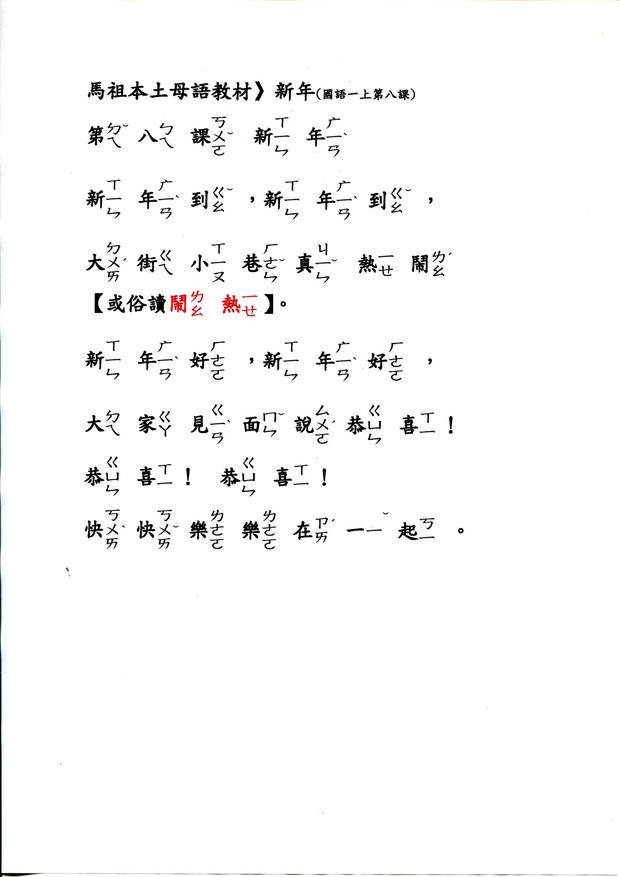 馬祖本土母語教材》新年(國語一上第八課)
第ㄉㄟˇ 八ㄅㄟ 課ㄎㄨㄛˇ 新ㄒㄧㄣ 年ㄬㄧㄢˋ
新ㄒㄧㄣ 年ㄬㄧㄢˋ 到ㄍㄠˇ,新ㄒㄧㄣ 年ㄬㄧㄢˋ 到ㄍㄠˇ,
大ㄉㄨㄞˊ 街ㄍㄟ 小ㄒㄧㄡ 巷ㄏㄜㄣˇ 真ㄐㄧㄣˇ 熱ㄧㄝ 鬧ㄌㄠˊ
【或俗讀鬧ㄌㄠ 熱ㄧㄝ】。
新ㄒㄧㄣ 年ㄬㄧㄢˋ 好ㄏㄜㄛ,新ㄒㄧㄣ 年ㄬㄧㄢˋ 好ㄏㄜㄛ,
大ㄉㄟ 家ㄍㄚ 見ㄍㄧㄢˋ 面ㄇㄣˇ 說ㄙㄨㄛˊ 恭ㄍㄩㄣ 喜ㄒㄧ!
恭ㄍㄩㄣ 喜ㄒㄧ! 恭ㄍㄩㄣ 喜ㄒㄧ!
快ㄎㄨㄞˋ 快ㄎㄨㄞˇ 樂ㄌㄜㄛ 樂ㄌㄜㄛ 在ㄗㄞˊ 一ㄧˇ 起ㄎㄧ 。